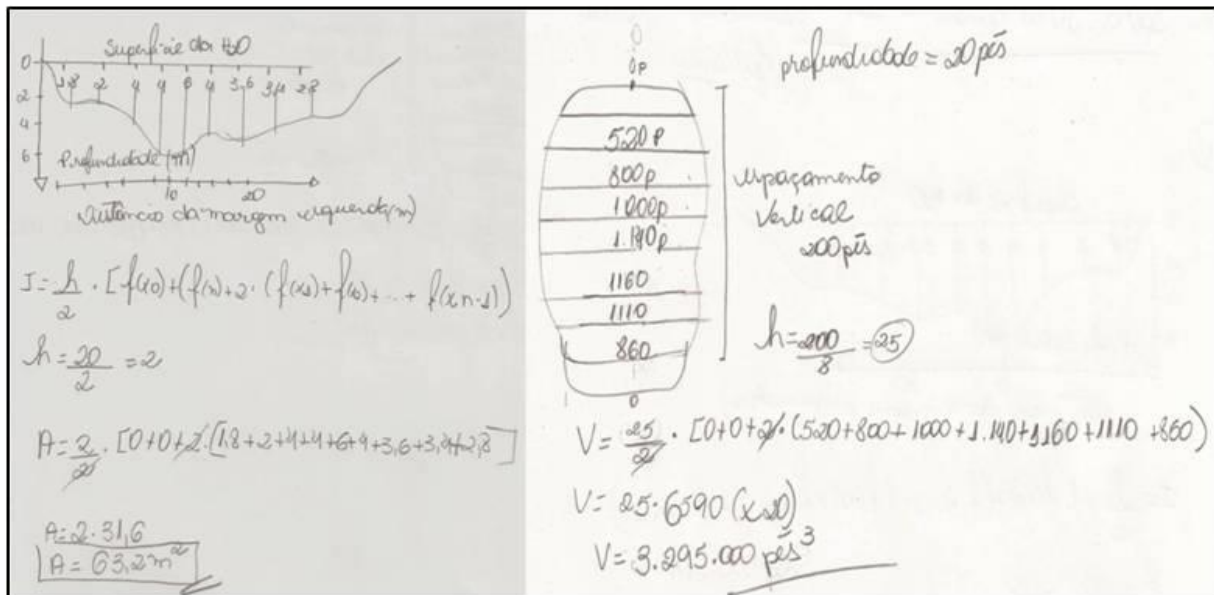 Superfície da H2O
0
1,8 2 4 4 6 4 3,6 3,4 2,8
2
4
6
Profundidade (m)
10 20
Distância da margem esquerda (m)
I = h/2 . [f(x0) + (f(n) + 2 . (f(x1) + f(x) + ... + f(xn-1))
h = 20/2 = 2
A = 2/2 . [0+0+2.[1,8+2+4+4+6+4+3,6+3,4+2,8]
A = 2.31,6
A = 63,2 m²
0
0p
520 p
800p
1000p
1.140p
1160
1110
860
0
profundidade = 20 pés
espaçamento
Vertical
200 pés
h = 200/8 = 25
V = 25/2 . [0+0+2. (520+800+1000+1.140+1160+1110+860)
V = 25.6590 (x20)
V = 3.295.000 pés³